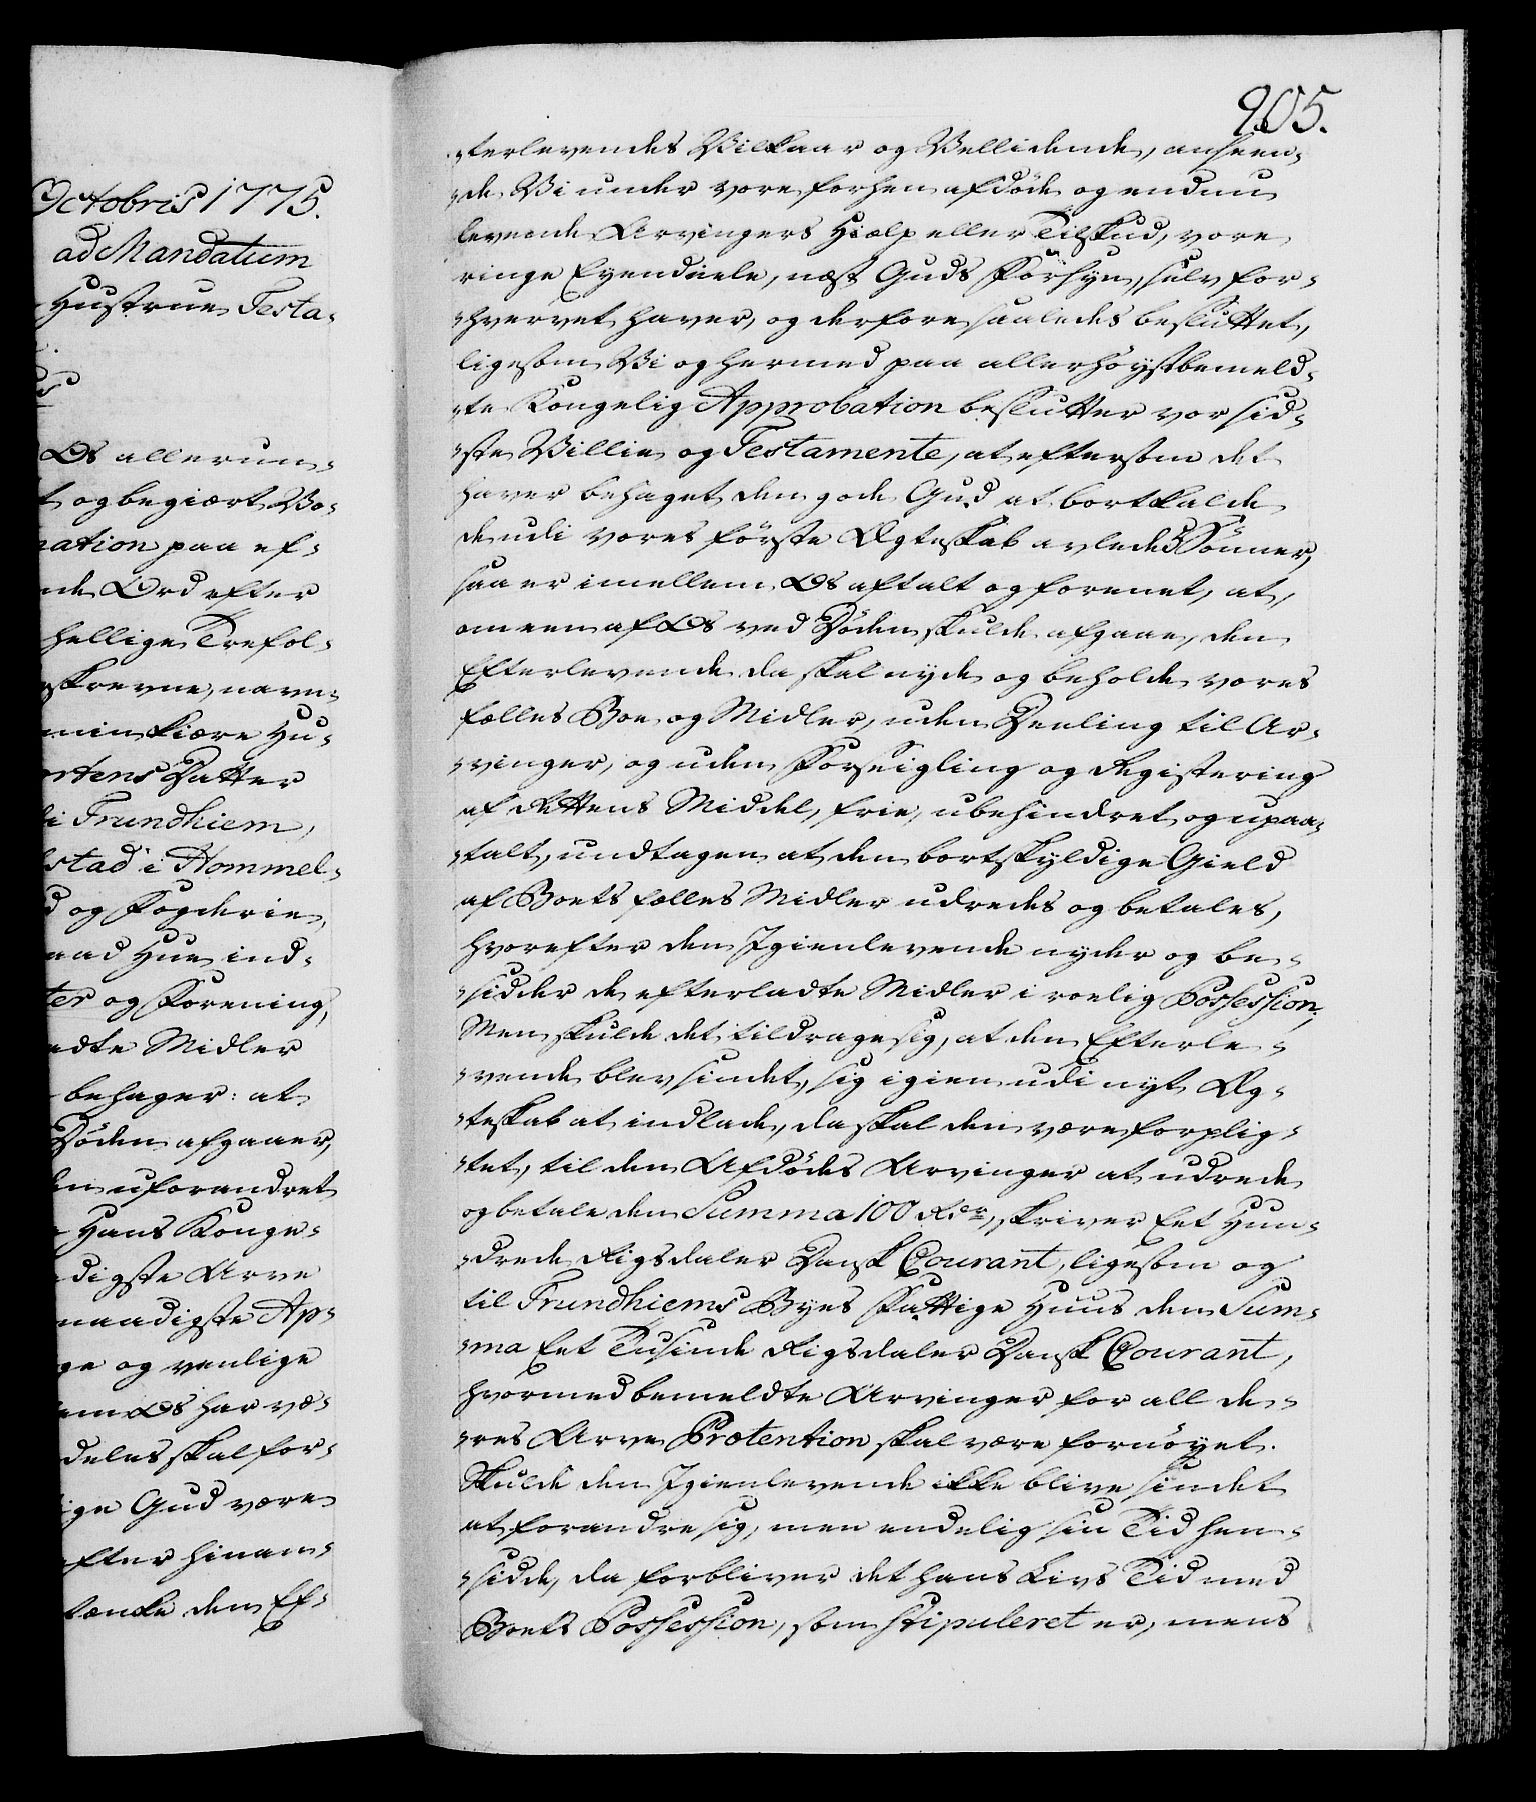 Octobris 1775.
ad Mandatum
Hustrue Testa-
Os allerun-
t og begiært Vo-
nation paa ef-
nde Ord efter
hellige Trefol-
skrevne, navn-
min kiære Hu-
ortens Datter
i Trundhiem,
stad i Hommel-
d og Fogderie,
aad Hun ind-
ter og Forening,
adte Midler
behager: at
Døden afgaaer,
en uforandret
Hans Konge-
digste Arve
naadigste Ap-
ge og venlige
em Os har væ-
deles skal for-
ige Gud være
efter hinan-
tænke den Ef-
905.
-terlevendes Vilkaar og Vellidende, anseen-
-de Vi under vore forhen afdöde og endnu
levende Arvingers Hielp eller Tilskud, vore
ringe Eyendeele, næst Guds Forsyn, selv for-
-hvervet haver, og derfore saaledes besluttet,
ligesom Vi og hermed paa allerhöystbemeld-
-te Kongelig Approbation beslutter vor sid-
-ste Villie og Testamente, at eftersom det
haver behaget den gode Gud at bortkalde
de udi vores förste Ægteskab avlede 3 Sönner,
saa er imellem Os aftalt og forenet, at,
om een af Os ved Döden skulde afgaae, den
Efterlevende da skal nyde og beholde vores
fælles Boe og Midler, uden Deeling til Ar-
-vinger, og uden Forseigling og Registering
af Rettens Middel, frie, ubehindret og upaa-
-talt, undtagen at den bortskyldige Gield
af Boets fælles Midler udredes og betales,
hvorefter den Igienlevende nyder og be-
-sidder de efterladte Midler i roelig Possession,
Men skulde det tildrage sig, at den Efterle-
-vende blev sindet, sig igien udi nyt Æg-
-teskab at indlade, da skal den være forplig-
-tet, til den Afdödes Arvinger at udrede
og betale den Summa 100 Rdr, skriver Eet Hun-
-drede Rigsdaler Dansk Courant, ligesom og
til Trundhiems Byes Fattige Huus den Sum-
-ma Eet Tusinde Rigsdaler Dansk Courant,
hvormed bemeldte Arvinger for all de-
-res Arve Prætention skal være fornöyet.
Skulde den Igienlevende ikke blive sindet
at forandre sig, men endelig sin Tid hen-
-sidde, da forbliver det hans Livs Tid med
Boets Possession, som stipuleret er, mens